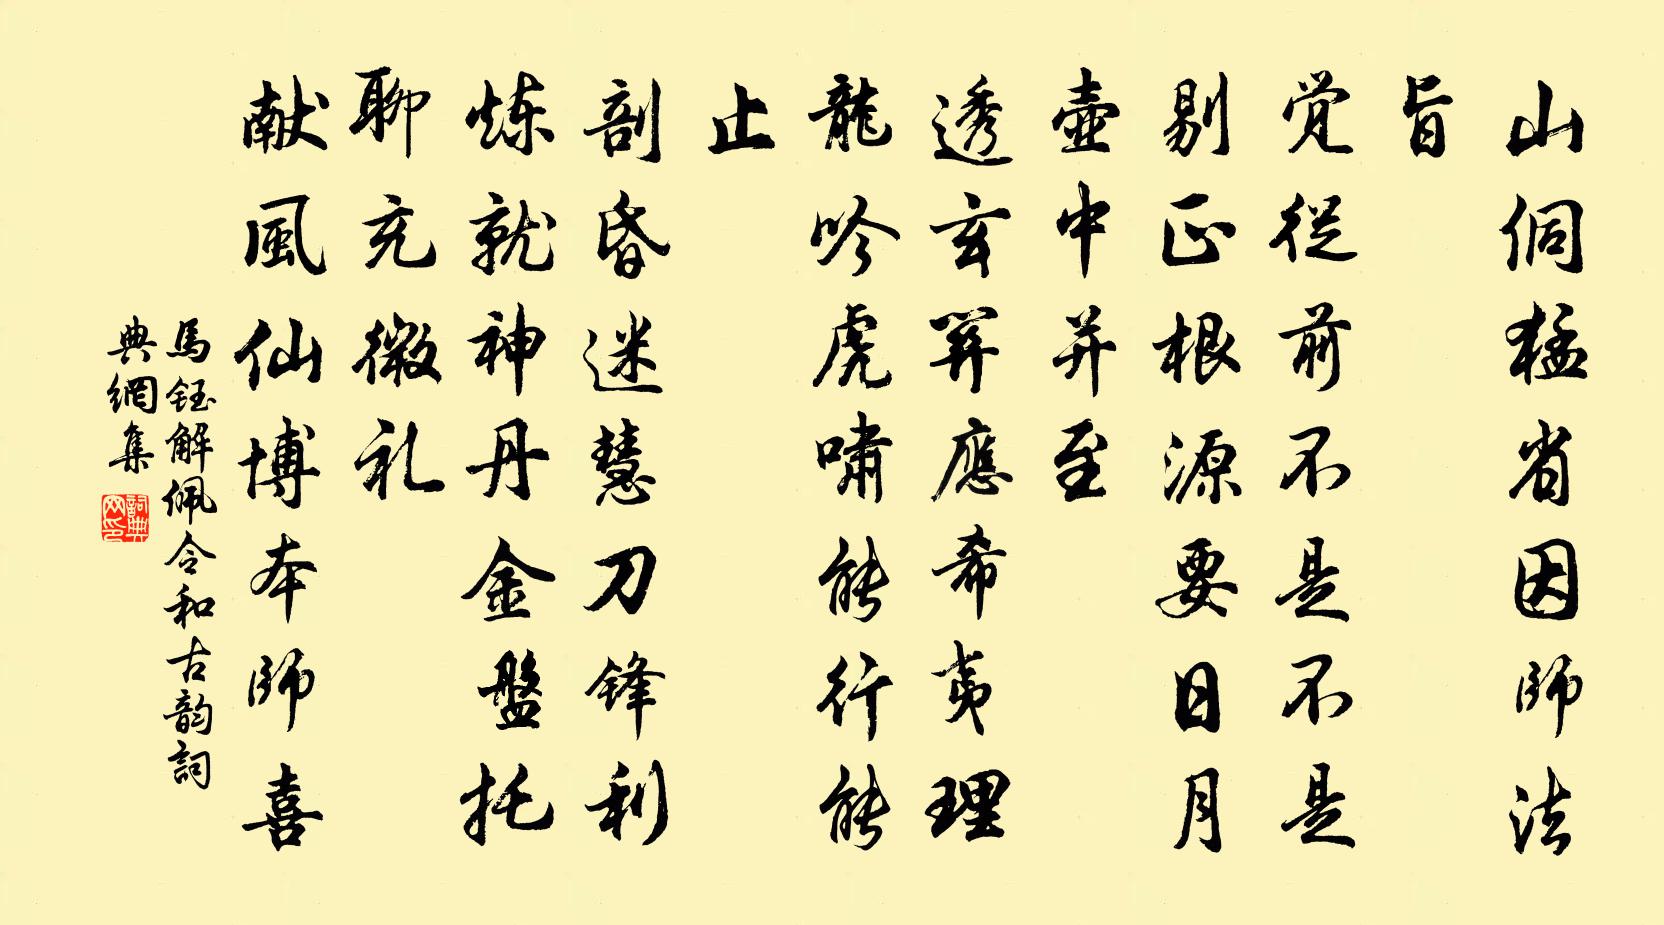 山侗猛省因師法
旨
覚從前不是不是
剔正根源要日月
壺中并至
透玄關應希夷理
龍吟虎嘯能行能
止
剖昏迷慧刀鋒利
炼就神丹金盤托
聊充微礼
献風仙博本師喜
馬鈺解佩令和古韵詞
典網集
詞典
网印